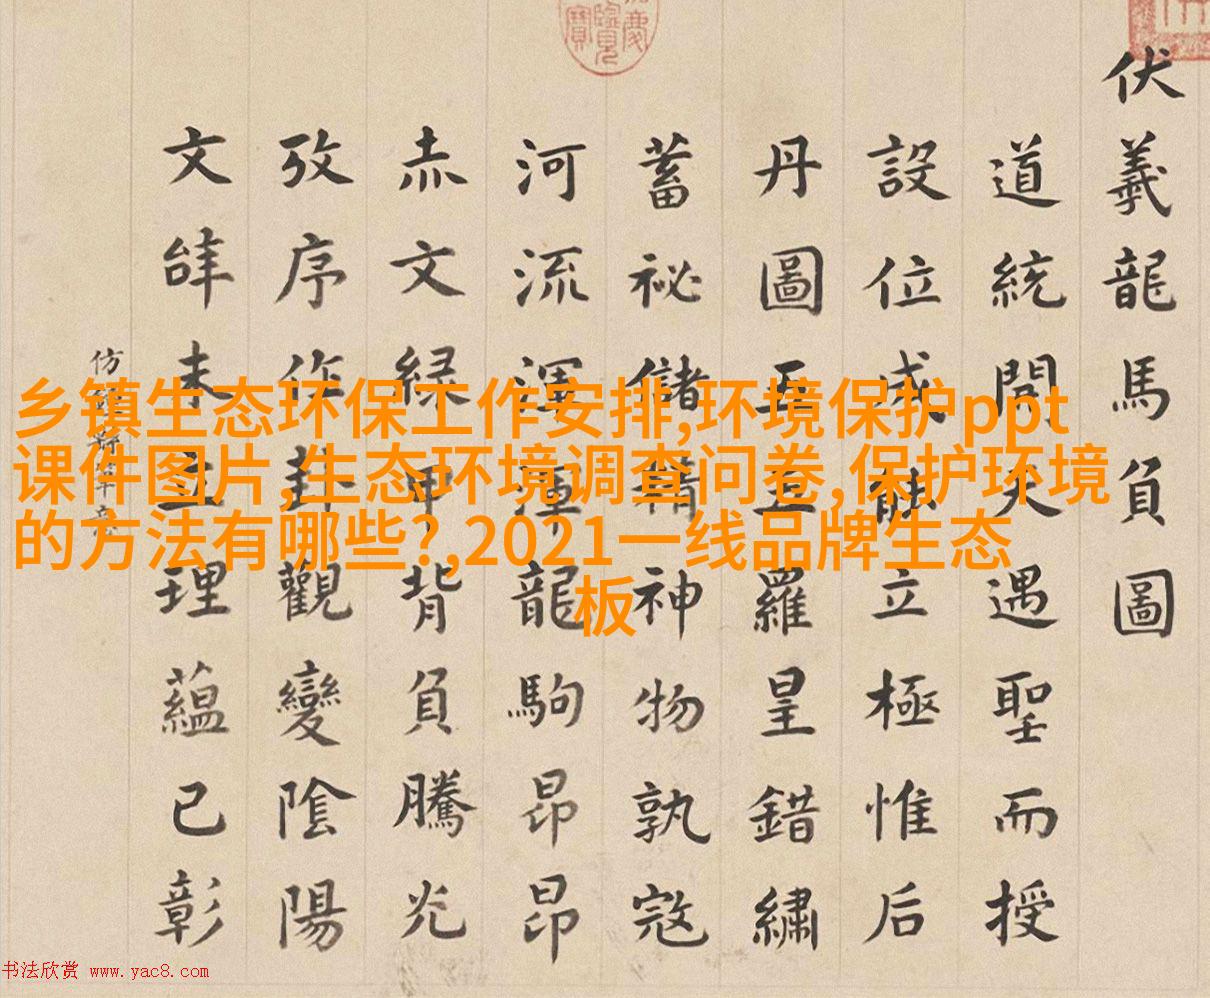 伏羲龍馬負圖
道統開天遇聖而授
設位成能立極惟后
丹圖羅皇錯繡
蓄祕儲精神物孰寇
河流渾渾龍駒昂昂
赤文緑甲背負騰光
攷序作卦觀變陰陽
文未立理蘊已彰
仿
慶覽寶
乡镇生态环保工作安排,环境保护ppt
课件图片,生态环境调查问卷,保护环境
的方法有哪些?,2021一线品牌生态
板
书法欣赏 www.yac8.com